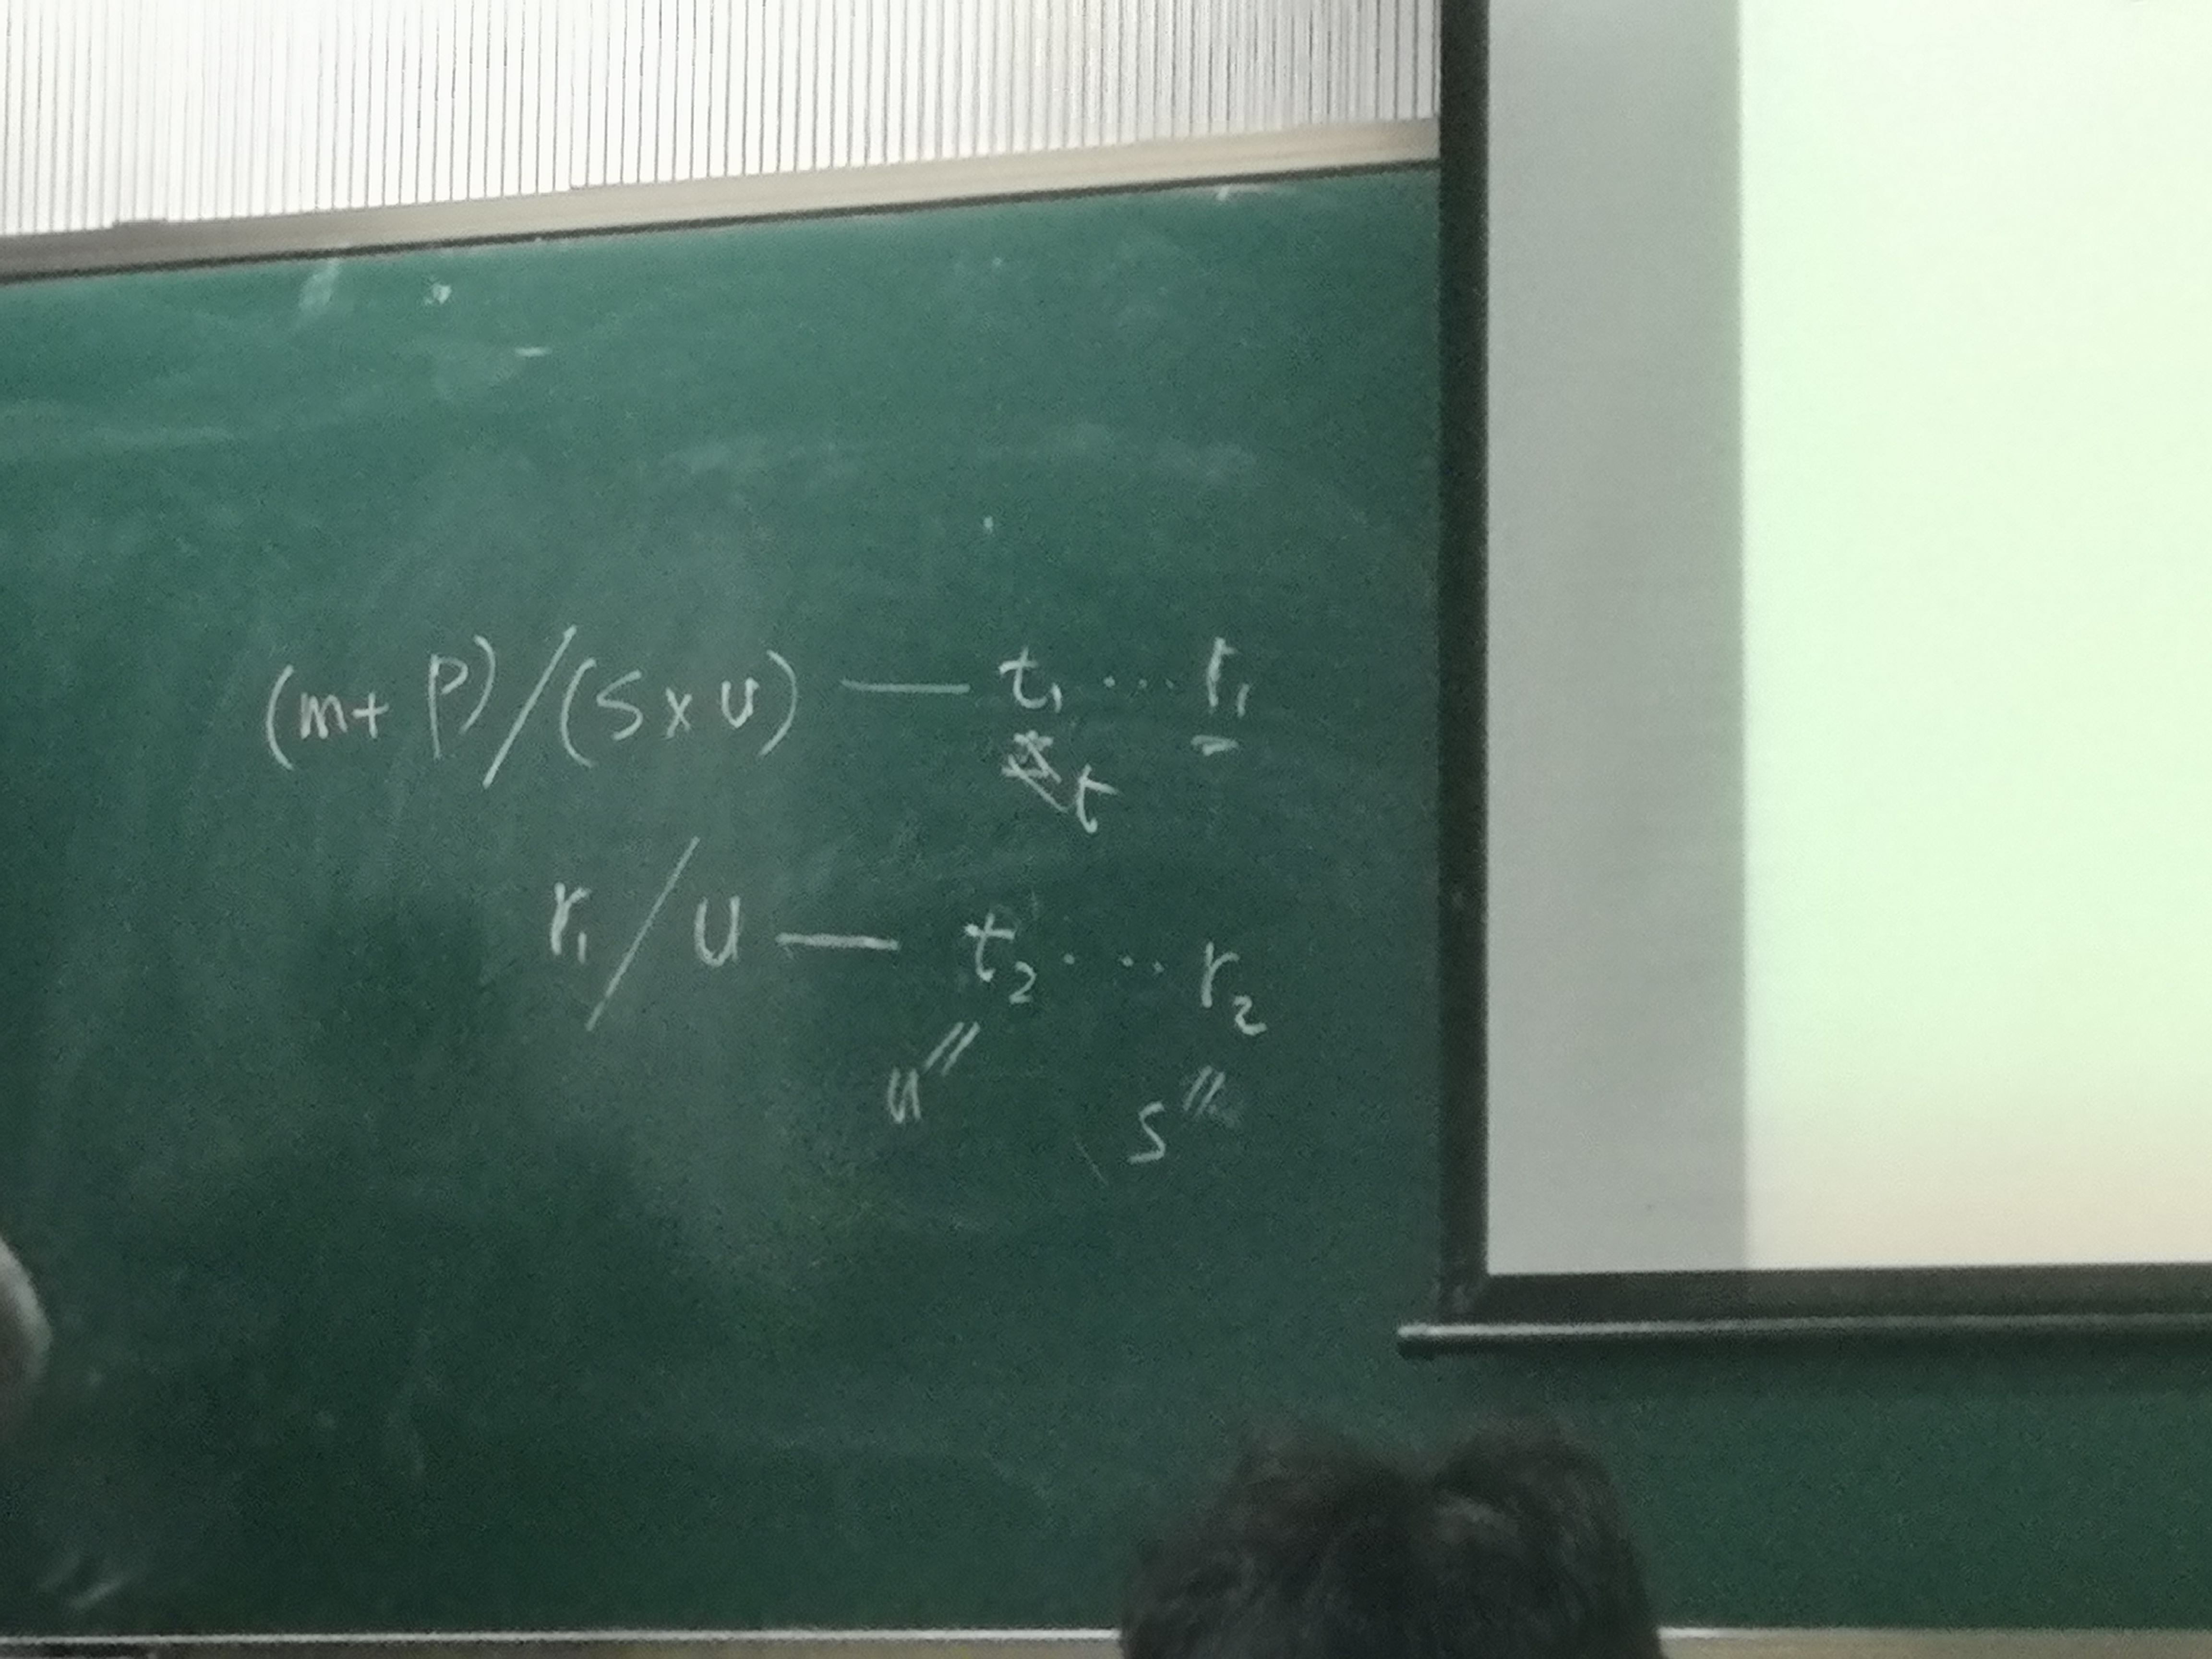 (m+ P)/(S×U) — t₁ ... r₁
t
r₁/U — t₂ ... r₂
u" s"